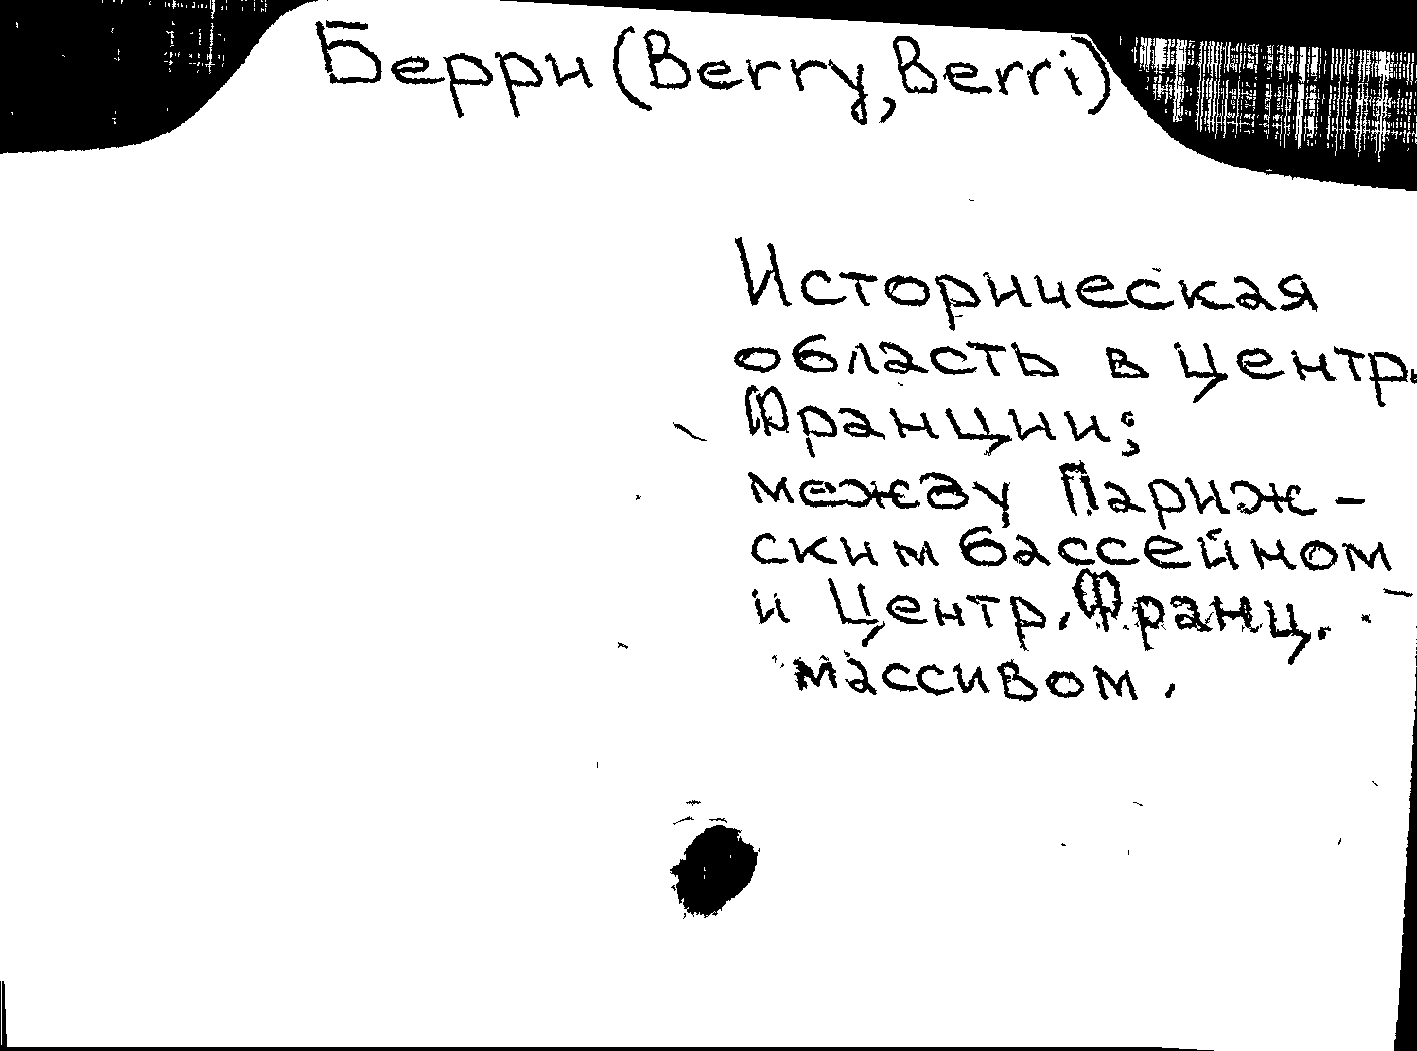 Берри (Berry, Berri)
Историческая
область в центр.
Франции;
между Париж-
ским бассейном
и Центр. Франц.
массивом.